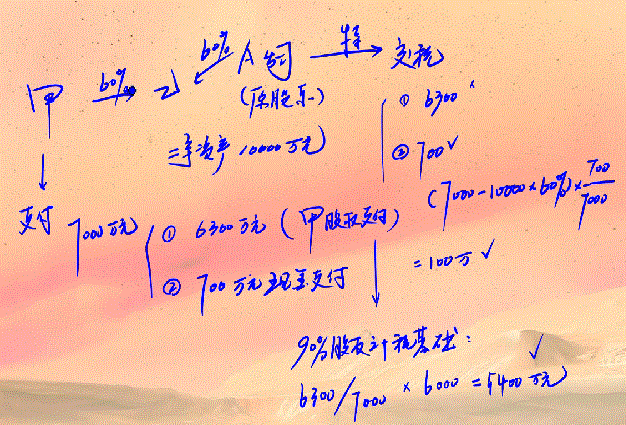 甲 60% → 乙 ← 60% A公司 特 → 交税
(原股东)
① 6300 ×
=净资产10000万元)
② 700 ✓
(7000-10000×60%)×700/7000
=100万 ✓
↓
支付7000万元
① 6300万元 (甲股权支付)
② 700万元现金支付
↓
90%股权计税基础:
6300/7000 × 6000 = 5400万元 ✓